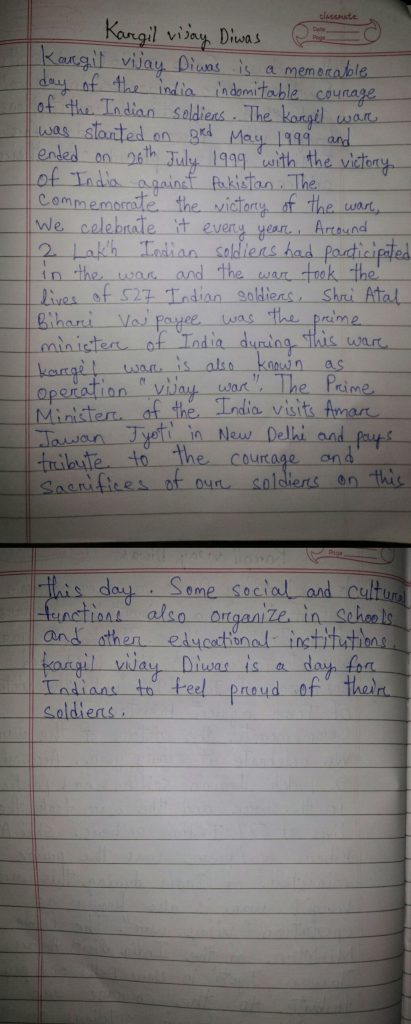 classmate
Date
Page
Kargil vijay Diwas
Kargil vijay Diwas is a memorable
day of the india indomitable courage
of the Indian soldiers. The kargil war
was started on 3rd May 1999 and
ended on 26th July 1999 with the victory
of India against Pakistan. The
Commemorate the victory of the war,
We celebrate it every year. Around
2 Lakh Indian soldiers had participated
in the war and the war took the
lives of 527 Indian soldiers. Shri Atal
Bihari Vajpayee was the prime
minister of India during this war
kargil war is also known as
operation "vijay war". The Prime
Minister of the India visits Amar
Jawan Jyoti in New Delhi and pays
tribute to the courage and
Sacrifices of our soldiers on this
Page
this day. Some social and cultural
functions also organize in schools
and other educational institutions.
kargil vijay Diwas is a day for
Indians to feel proud of their
soldiers.